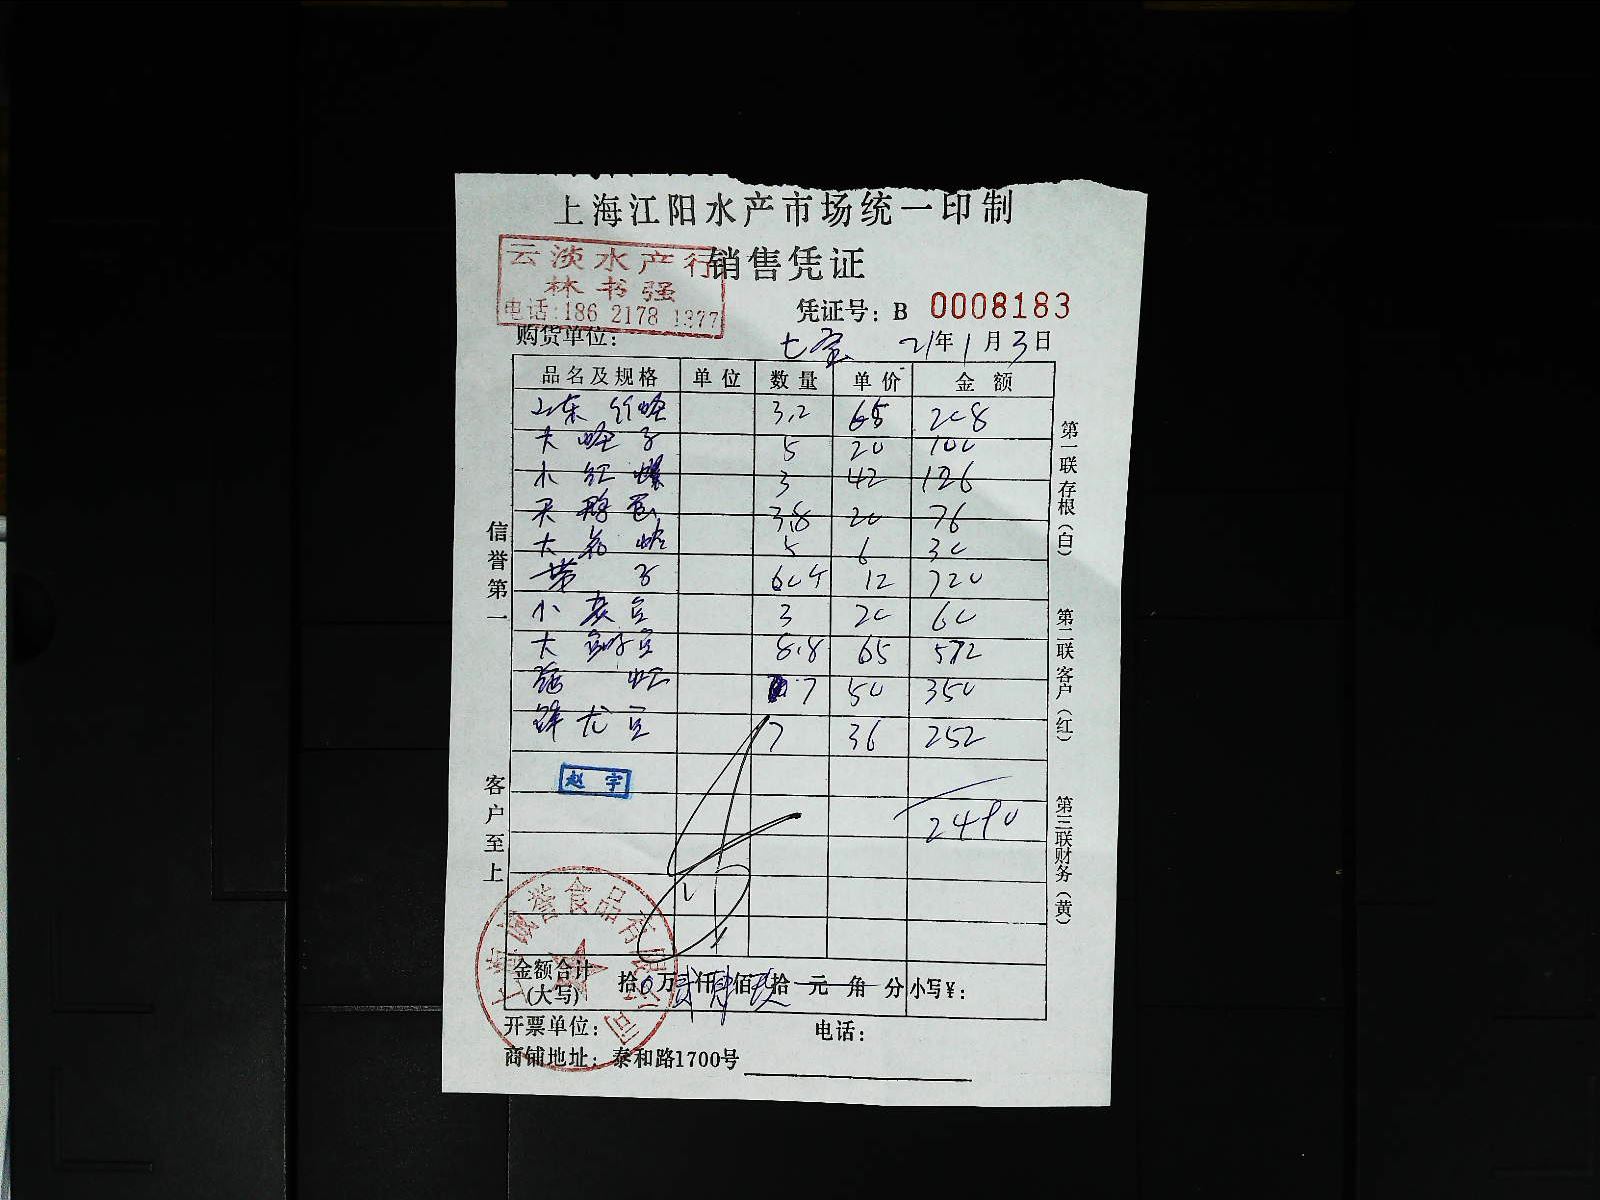 上海江阳水产市场统一印制
销售凭证
云淡水产行
林书强
电话:186 2178 1377
凭证号: B 0008183
购货单位:
21年1月3日
品名及规格 单位 数量 单价 金额
山东 红 3.2 65 208
大 子 5 20 100
小 红 螺 3 42 126
天 鹅 蛋 3.8 20 76
大 花 蛤 5 6 30
带 子 60个 12 720
小 3 20 60
大 8.8 65 572
虾 7 50 350
7 36 252
2490
赵宇
信誉第一
客户至上
第一联存根(白)
第二联客户(红)
第三联财务(黄)
上海诚誉食品有限公司
金额合计(大写) 拾0万贰仟肆佰玖拾元角分 小写¥:
开票单位: 电话:
商铺地址: 泰和路1700号